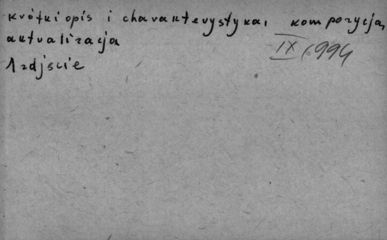 krótki opis i charakterystyka, kompozycja,
aktualizacja
IX 1994
1 zdjęcie